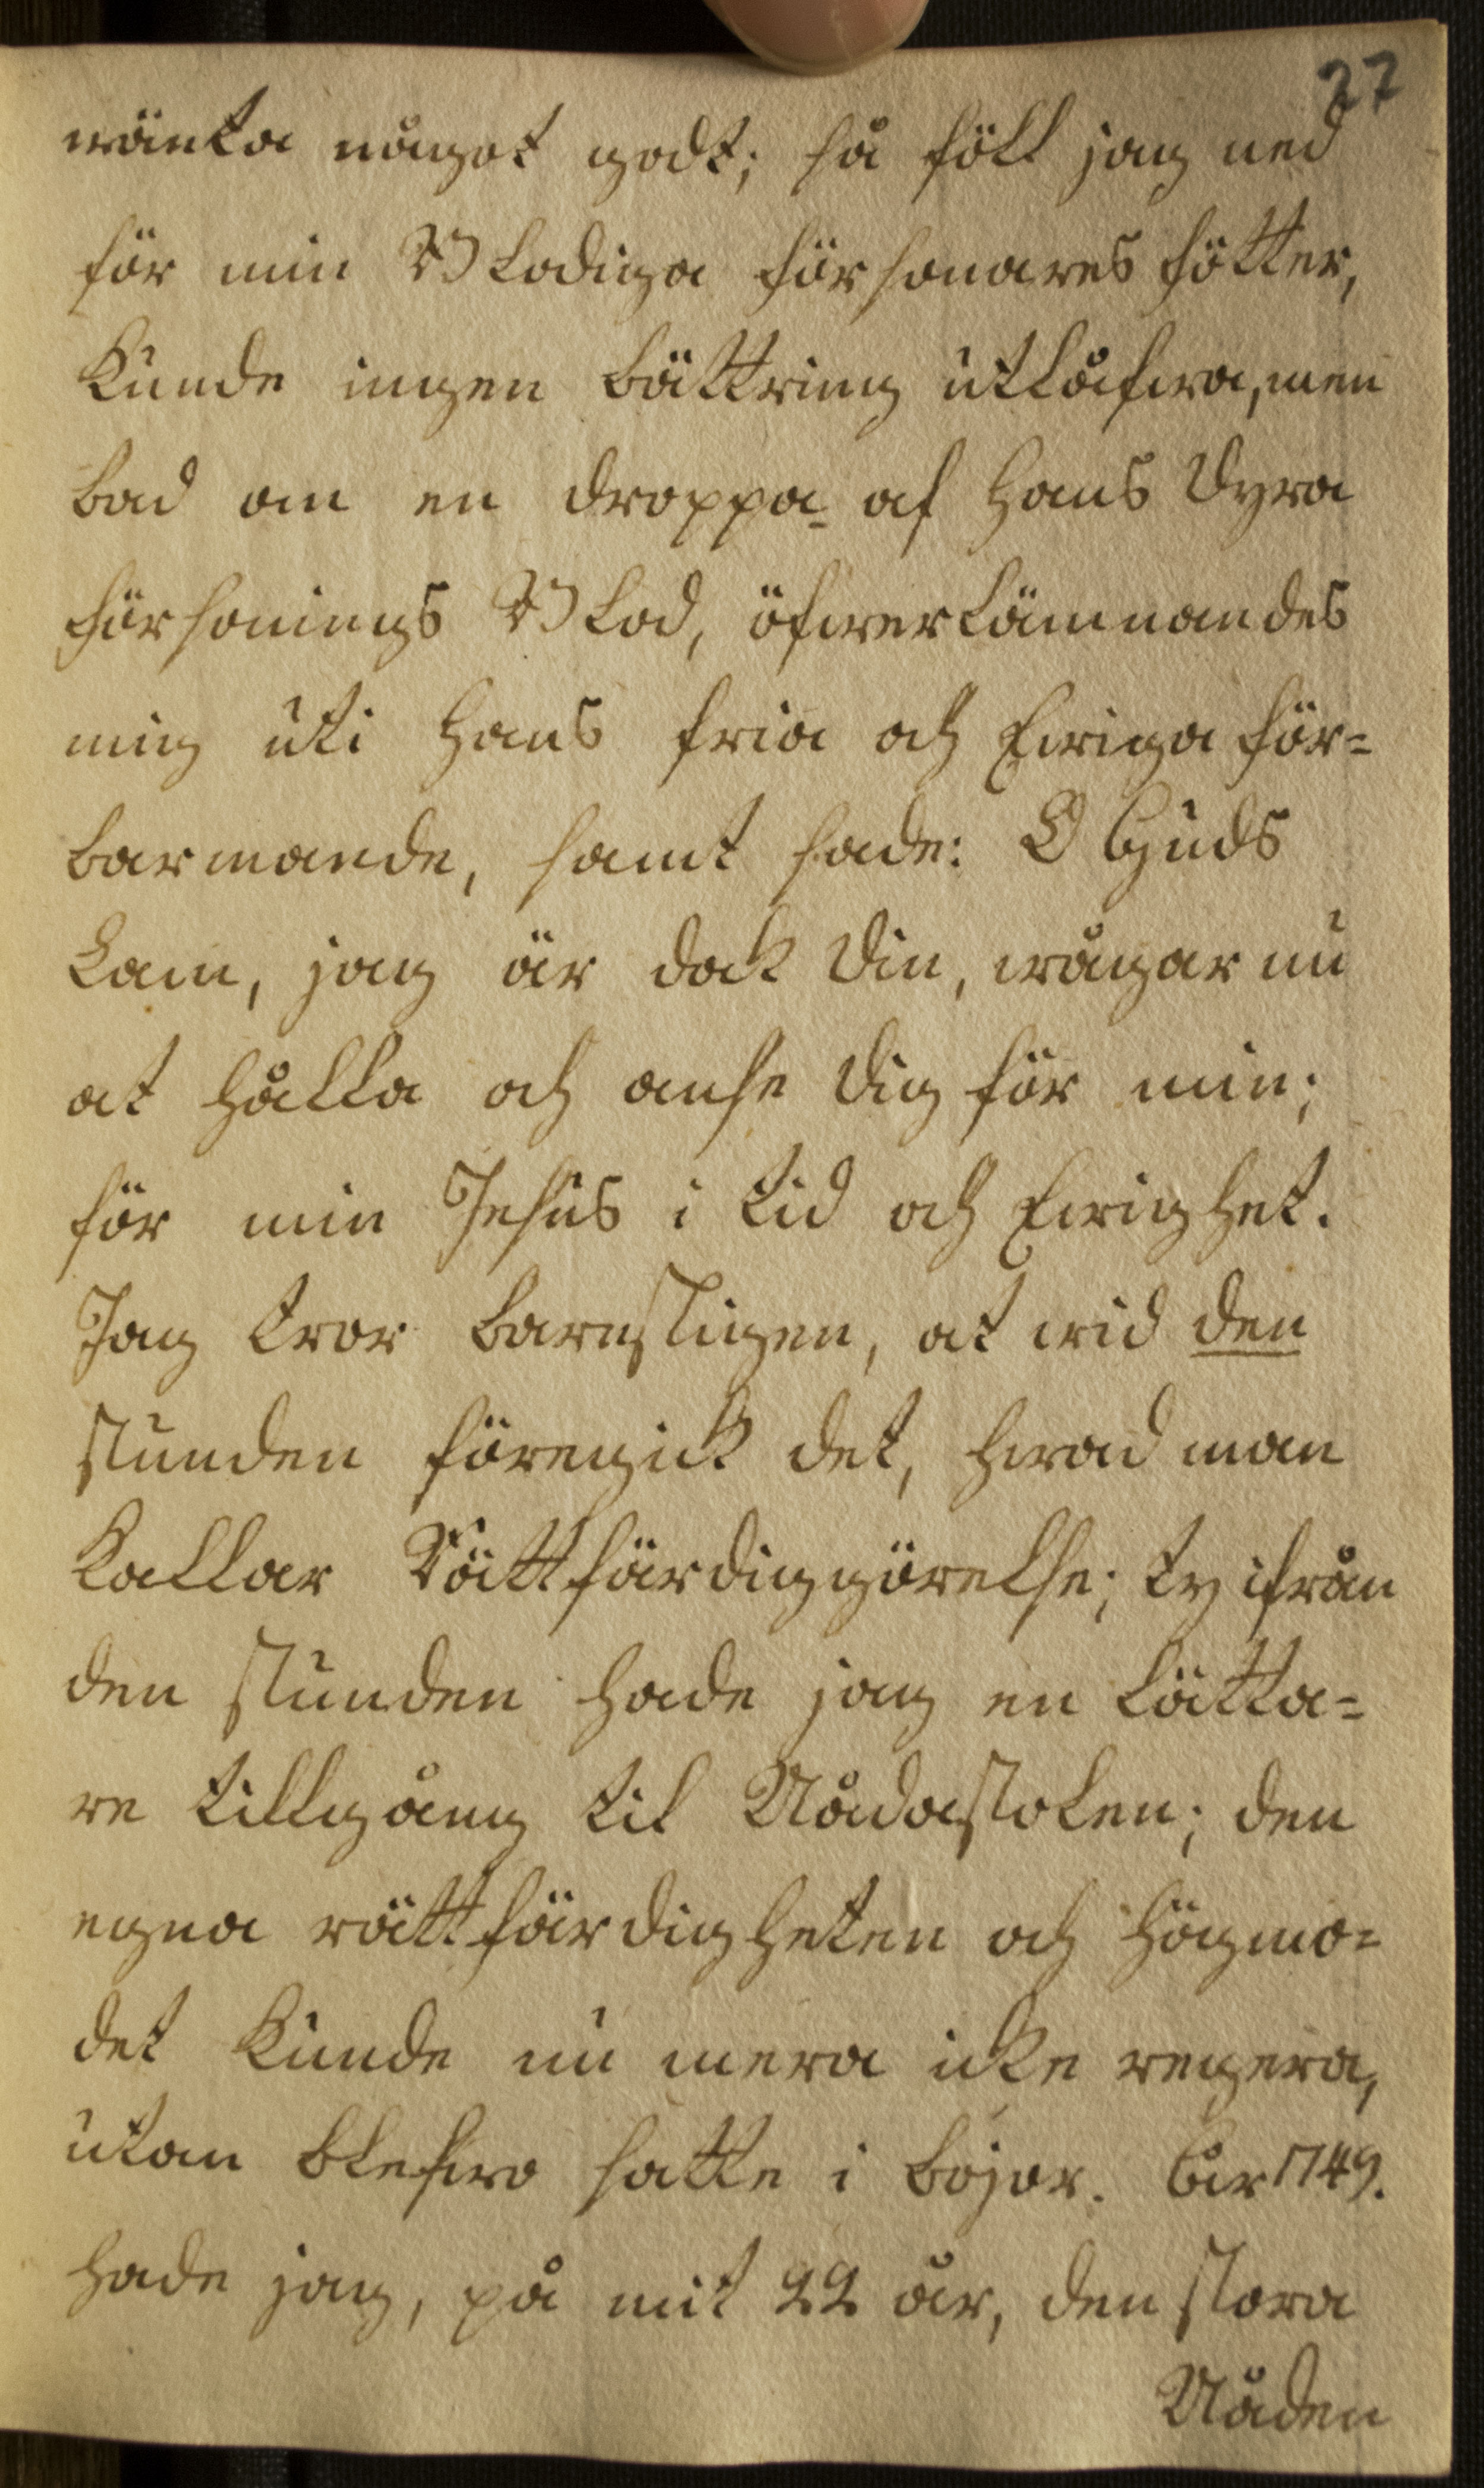 27
wänta något godt; så föll jag ned
för min Blodiga försonares fötter,
Kunde ingen bättring utlåfwa, men
bad om en droppa af Hans Dyra
försonings Blod, öfwerlämnandes
mig uti Hans fria och Ewiga för=
barmande, samt sade: O Guds
Lam, jag är dock Din, wågar nu
at hålla och anse Dig för min;
för min Jesus i tid och Ewighet.
Jag tror barnsligen, at wid den
stunden föregick det, hwad man
Kallar Rättfärdiggörelse; ty ifrån
den stunden hade jag en lätta=
re tillgång til Nådastolen; den
egna rättfärdigheten och högmo=
det Kunde nu mera icke regera,
utan blefwo satte i bojor. År 1749.
hade jag, på mit 22 år, den stora
Nåden